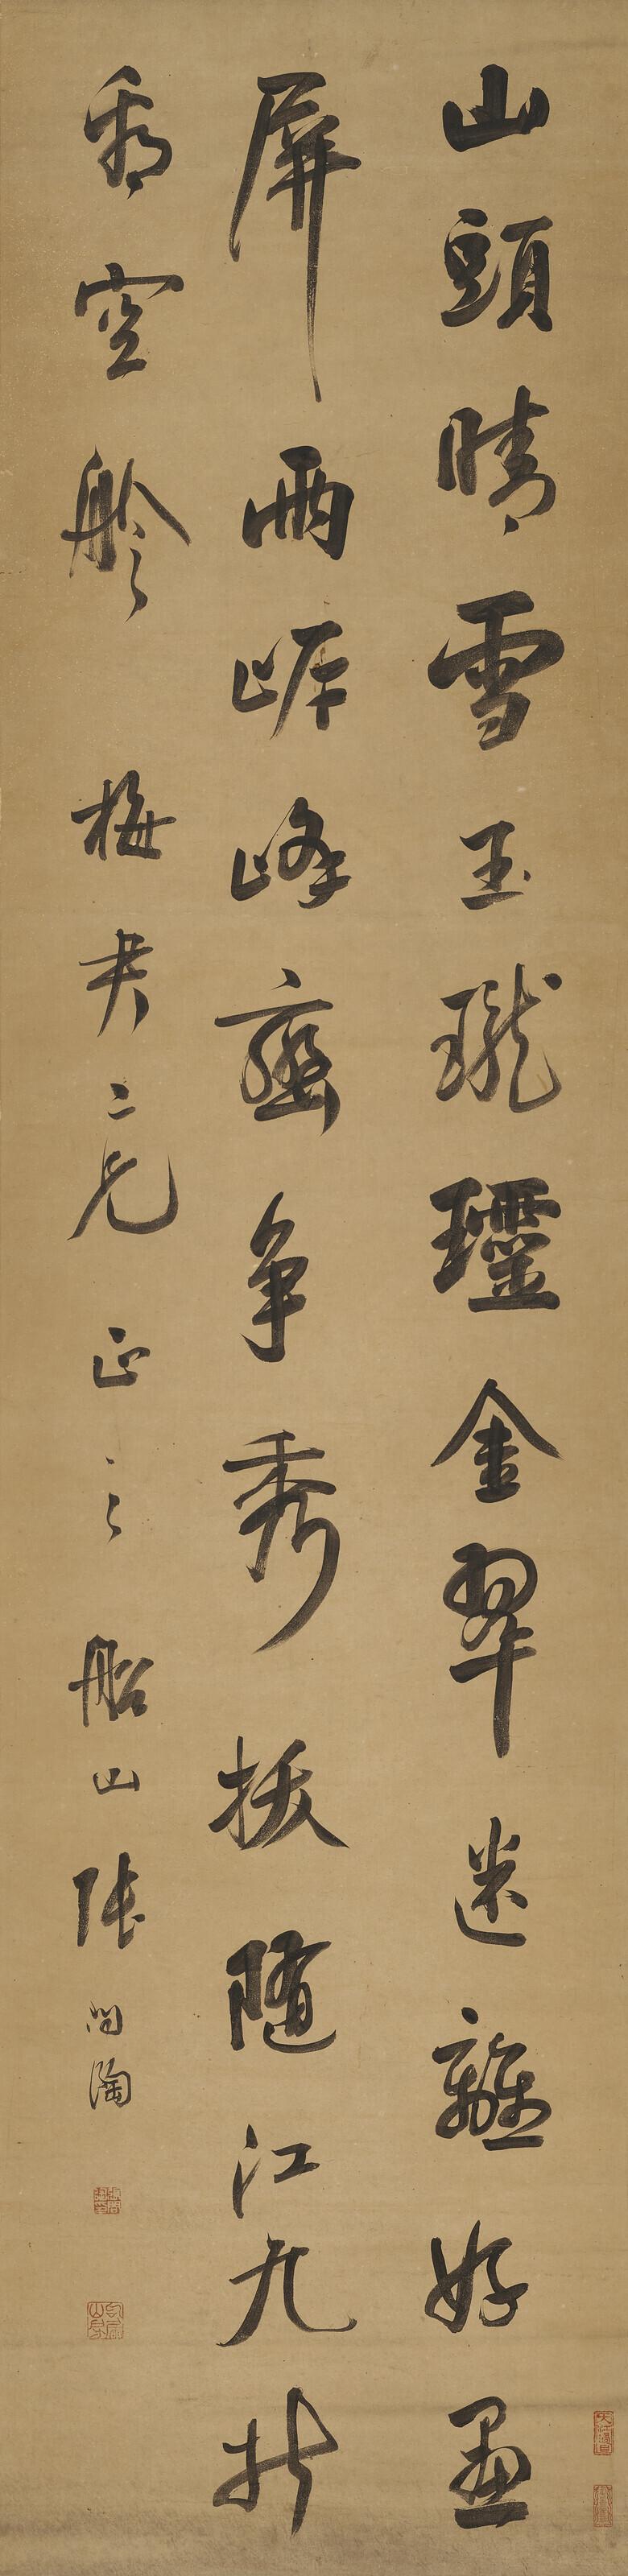 山頭晴雪玉瓏瓏金翠迷離好畫
屏兩岸峰巒爭秀拔隨江九折
看空舲 梅君二兄正之 船山張問陶